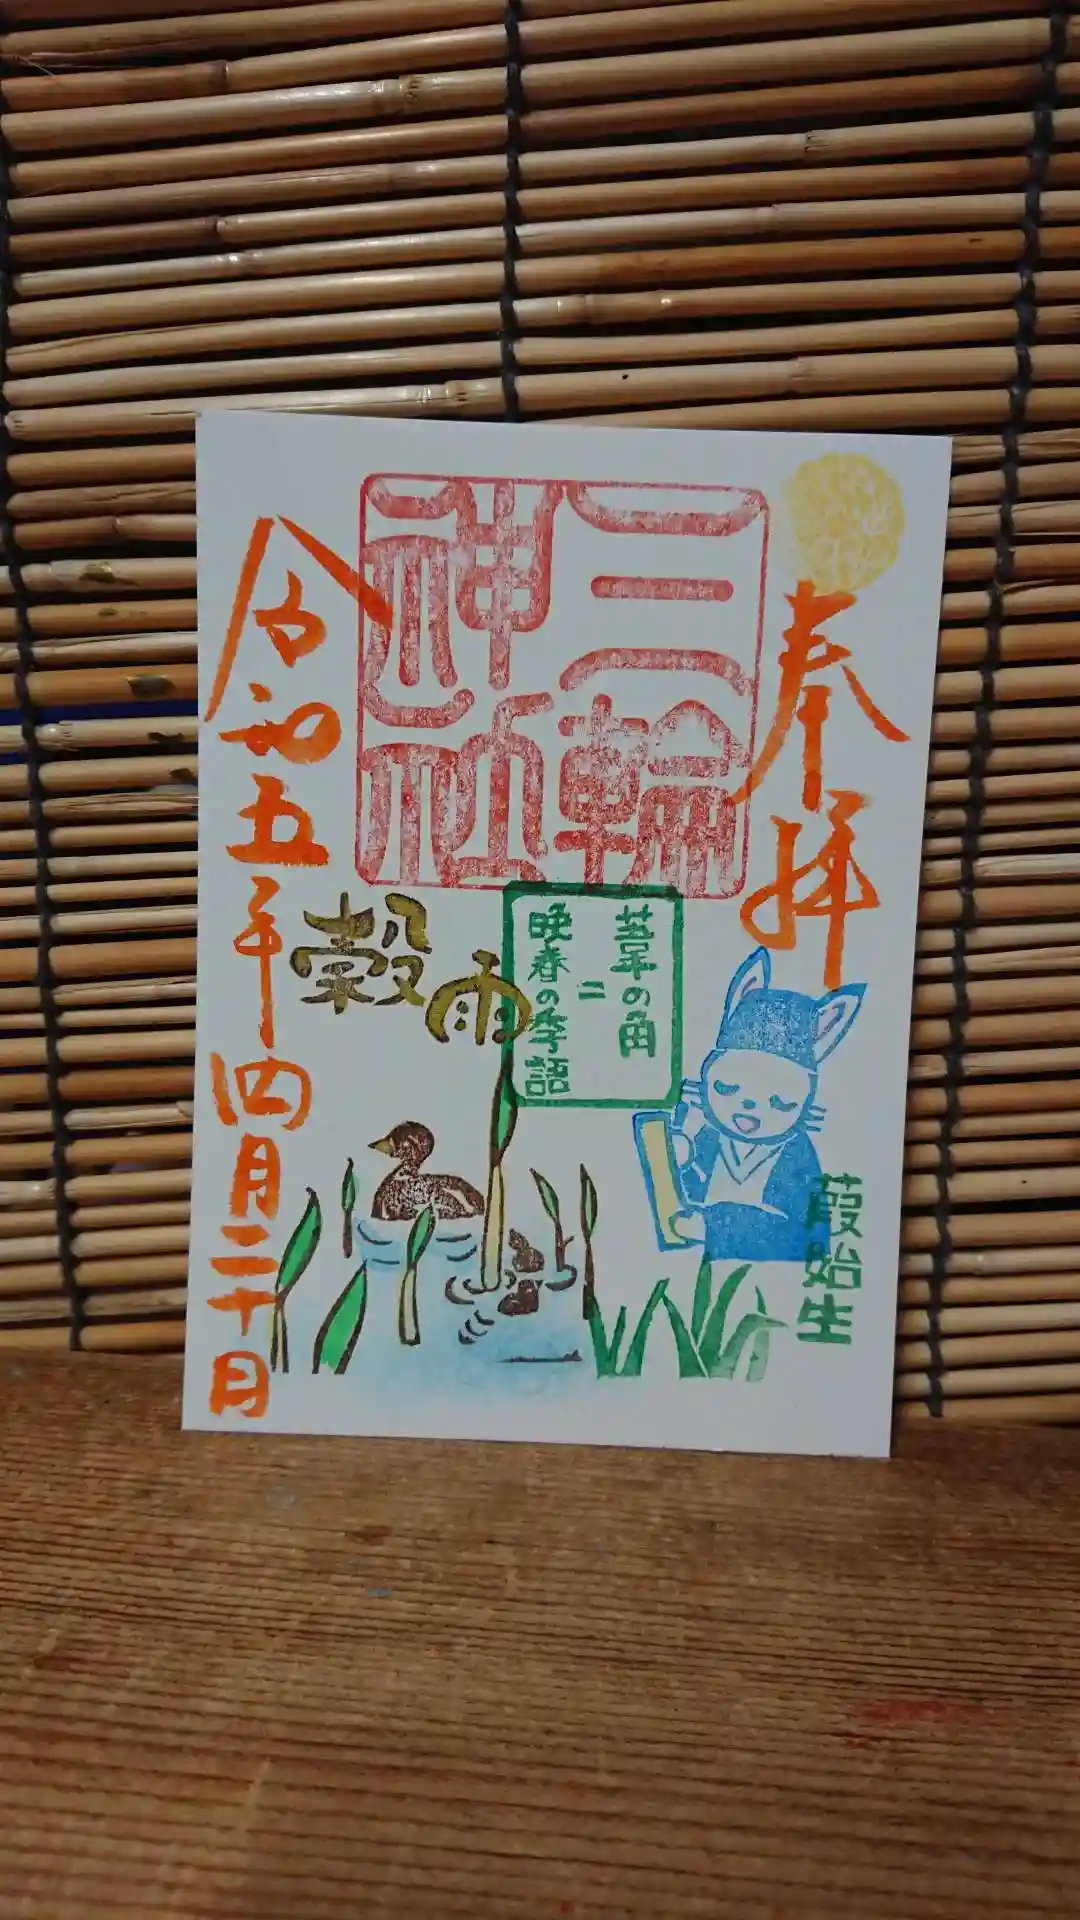 奉拝
三輪
神社
葦の角
二
晩春の季語
穀雨
葭始生
令和五年四月二十日